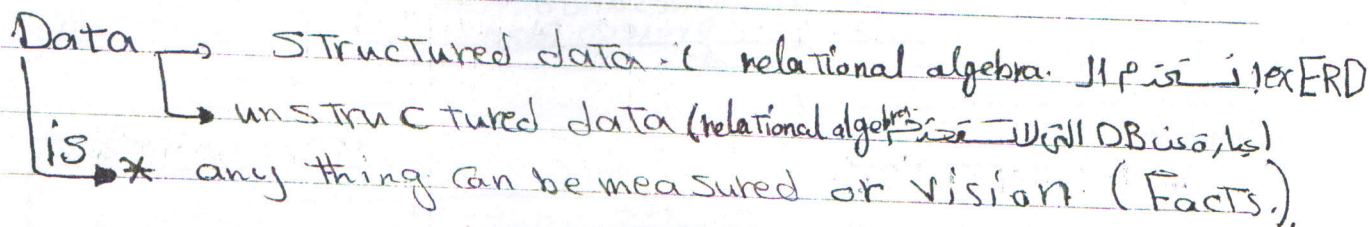 Data → structured data :( relational algebra. نستخدم ال ex ERD
→ unstructured data (relational algebra عبارة عن DB التي لا تستخدم
is → * any thing can be measured or vision (Facts.).